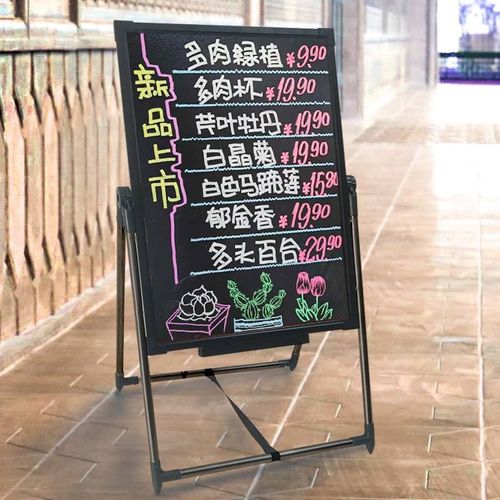 新品上市
多肉緑植¥9.90
多肉杯¥19.90
芹叶牡丹¥19.90
白晶菊¥19.90
白色马蹄莲¥15.80
郁金香¥19.90
多头百合¥29.90